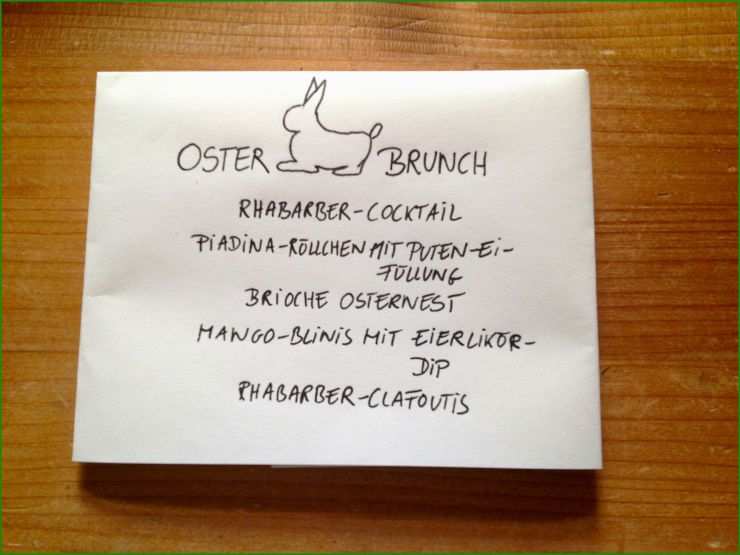 OSTER BRUNCH
RHABARBER-COCKTAIL
PIADINA-RÖLLCHEN MIT PUTEN-EI-
FÜLLUNG
BRIOCHE OSTERNEST
MANGO-BLINIS MIT EIERLIKÖR-
DIP
RHABARBER-CLAFOUTIS